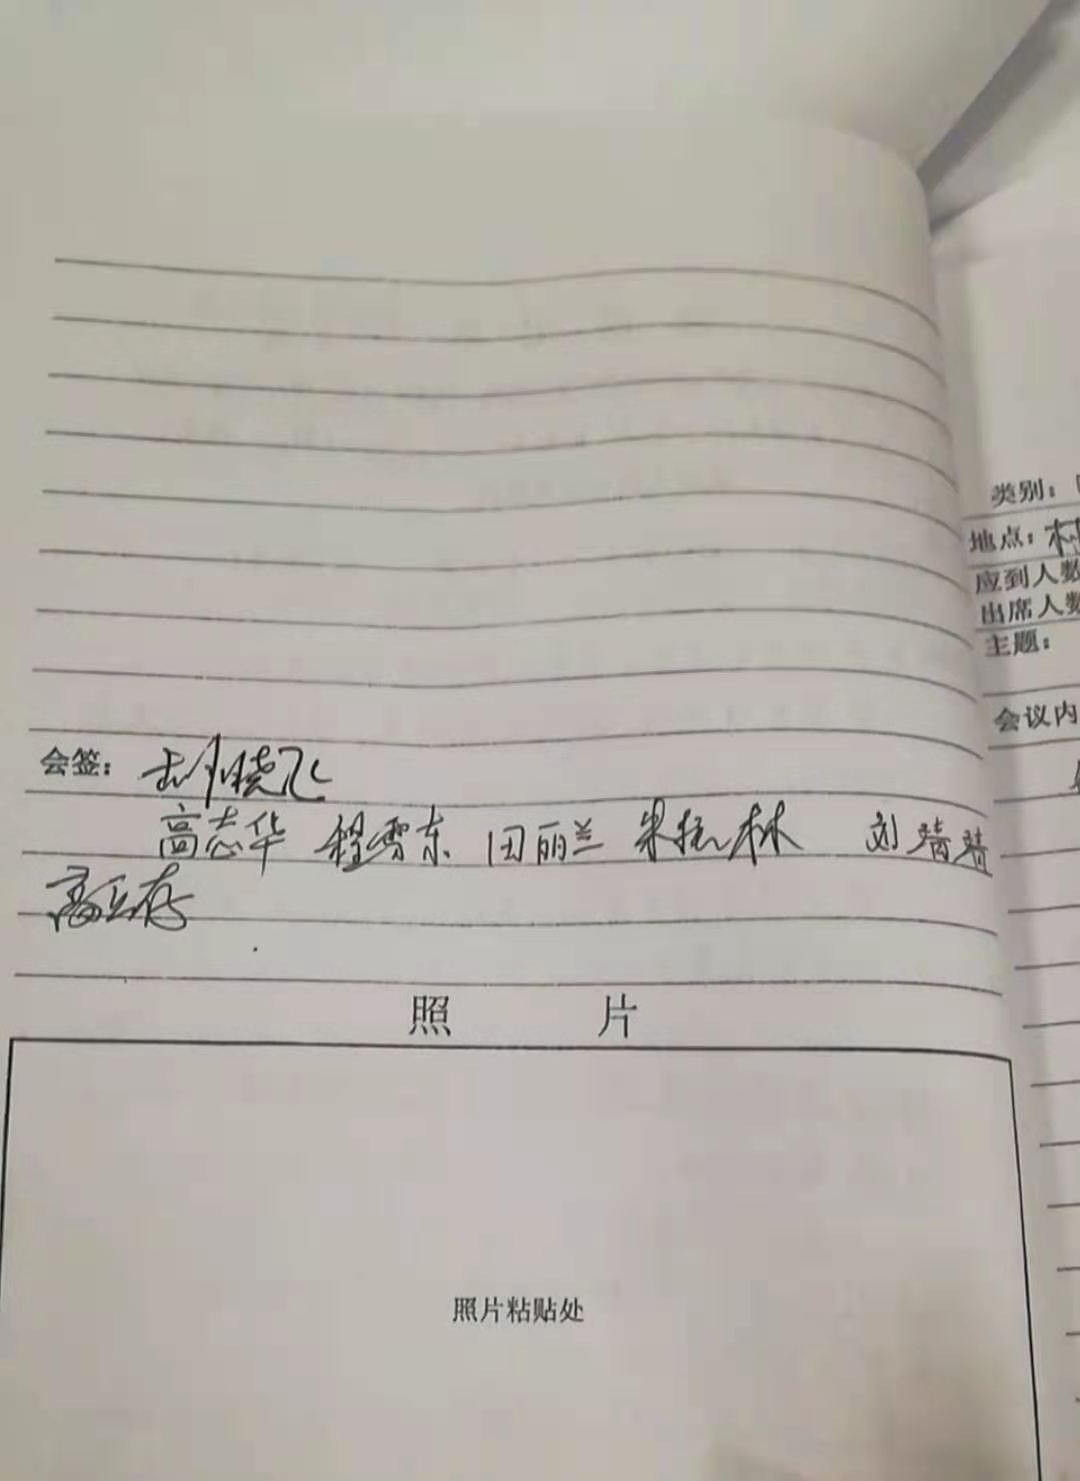 会签：
高志华 程雪东 田丽兰 米拉林 刘青青
照 片
照片粘贴处
类别：
地点：村
应到人数
出席人数
主题：
会议内